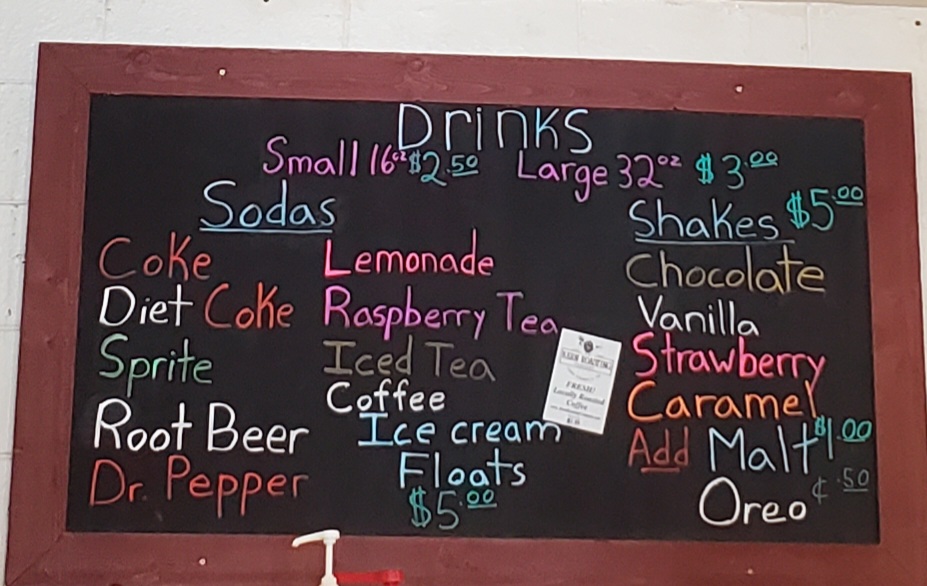 Drinks
Small 16oz $2.50 Large 32oz $3.00
Sodas
Coke
Diet Coke
Sprite
Root Beer
Dr. Pepper
Lemonade
Raspberry Tea
Iced Tea
Coffee
Ice cream
Floats
$5.00
FRESH!
Locally Roasted
Coffee
Shakes $5.00
Chocolate
Vanilla
Strawberry
Caramel
Add Malt $1.00
Oreo ¢.50